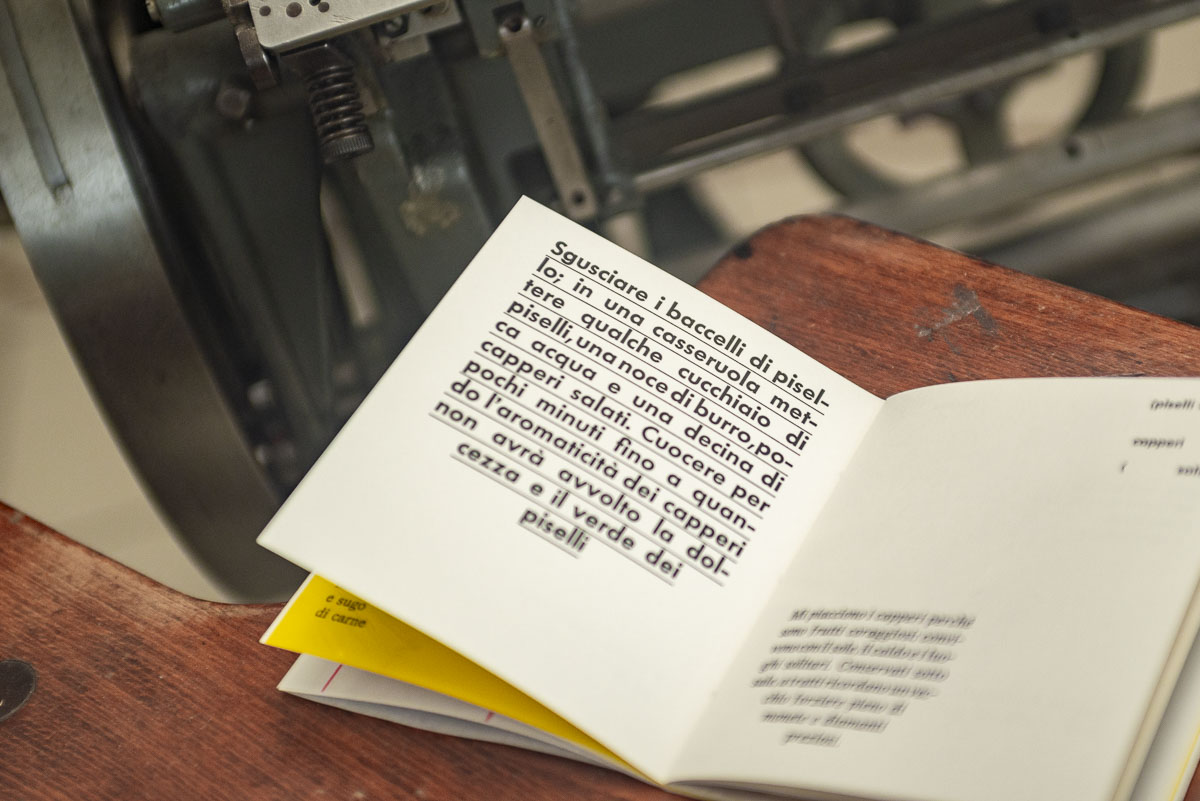 Sgusciare i baccelli di pisel-
lo; in una casseruola met-
tere qualche cucchiaio di
piselli, una noce di burro, po-
ca acqua e una decina di
capperi salati. Cuocere per
pochi minuti fino a quan-
do l'aromaticità dei capperi
non avrà avvolto la dol-
cezza e il verde dei
piselli
e sugo
di carne
(piselli
capperi
Mi piacciono i capperi perché
sono frutti coraggiosi: conos-
sole. Il caldo e i luo-
ghi solitari. Conservati sotto
sale, a tratti ricordano un vec-
chio forziere pieno di
monete e diamanti
preziosi.